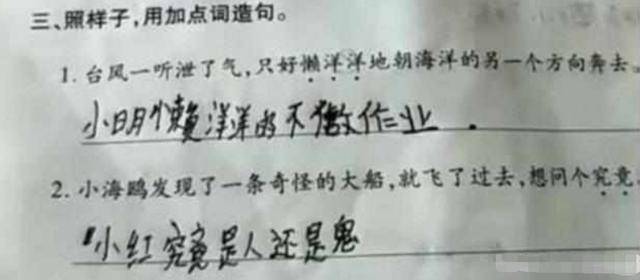 三、照样子,用加点词造句。
1. 台风一听泄了气,只好懒洋洋地朝海洋的另一个方向奔去。
小明懒洋洋的不做作业.
2. 小海鸥发现了一条奇怪的大船,就飞了过去,想问个究竟。
小红究竟是人还是鬼